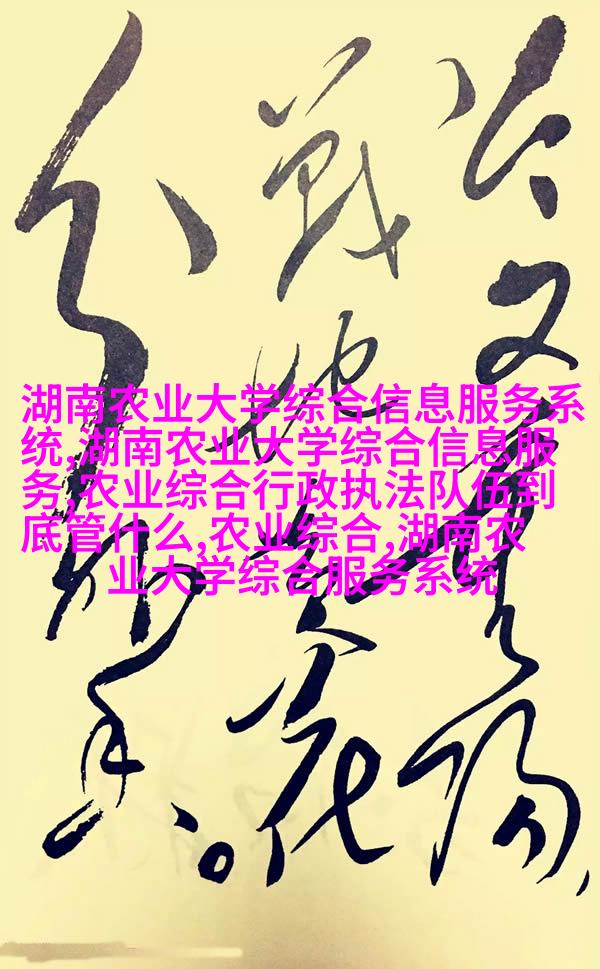 湖南农业大学综合信息服务系
统,湖南农业大学综合信息服
务,农业综合行政执法队伍到
底管什么,农业综合,湖南农
业大学综合服务系统
今又重陽,
戰地黄花
分外香。